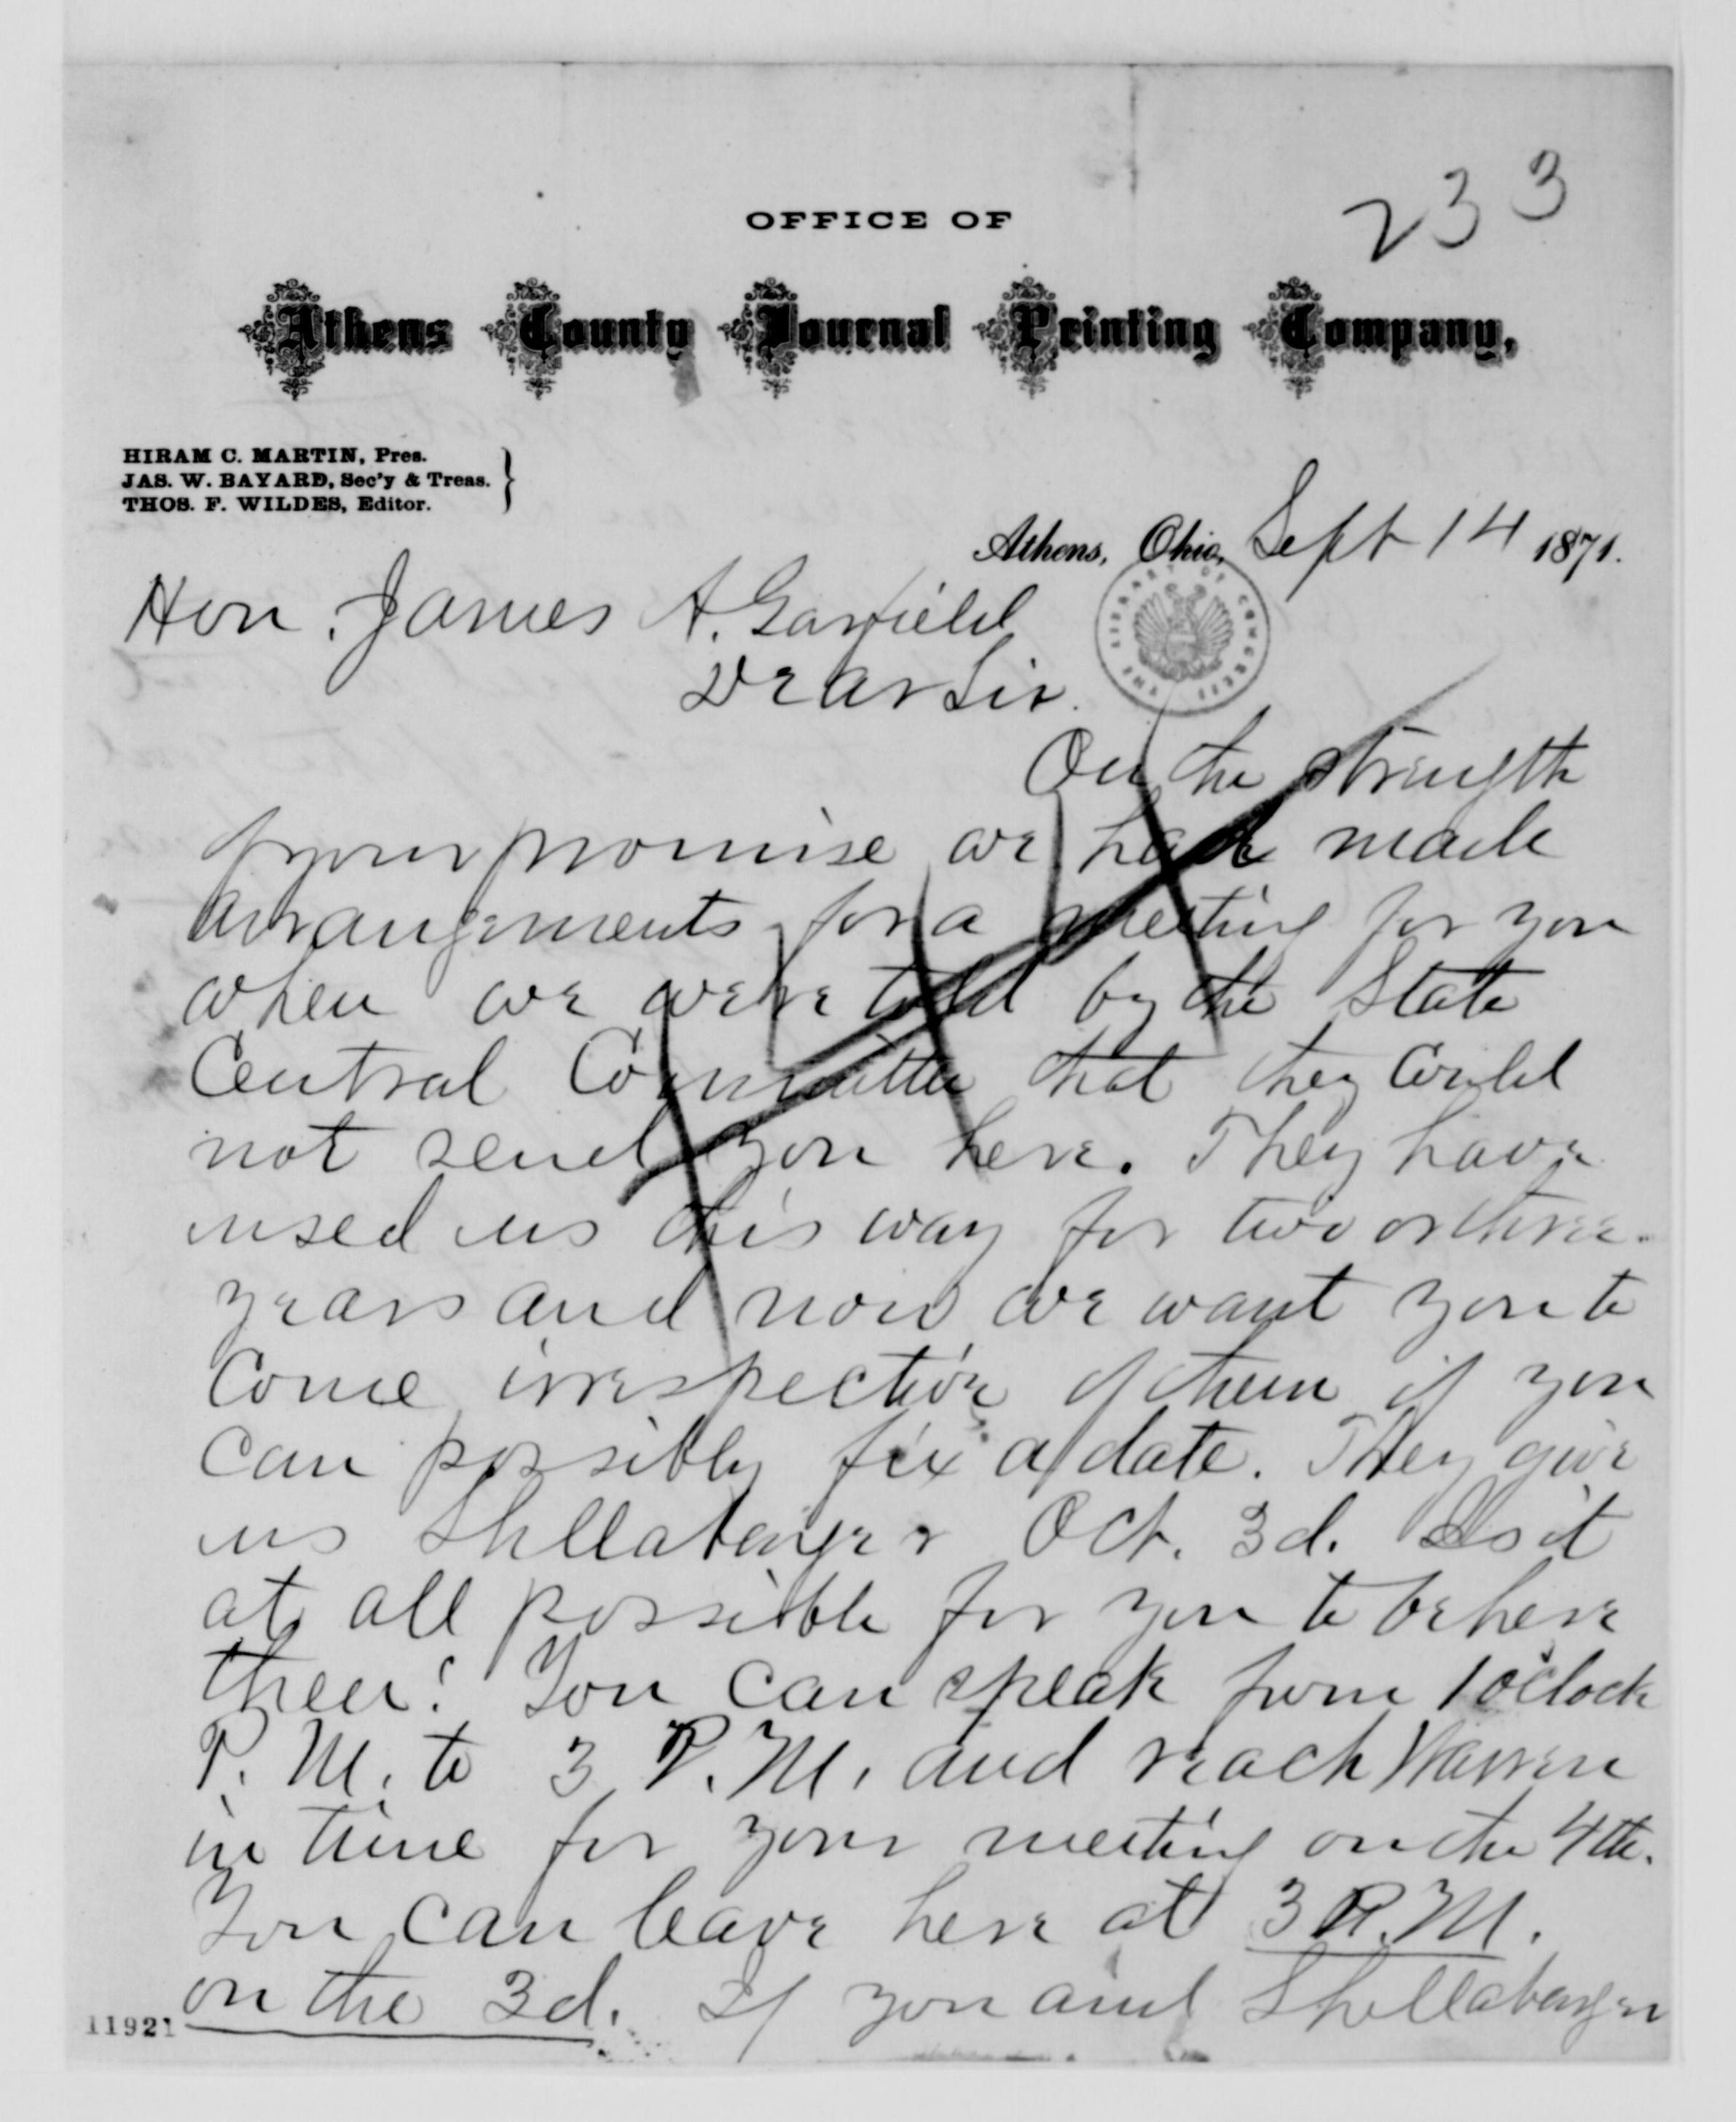 233
OFFICE OF
Athens County Journal Printing Company,
HIRAM C. MARTIN, Pres.
JAS. W. BAYARD, Sec'y & Treas.
THOS. F. WILDES, Editor.
Athens, Ohio, Sept 14 1871.
Hon. James A. Garfield
Dear Sir.
THE LIBRARY OF CONGRESS
On the strength
of your promise we had made
arrangements for a meeting for you
when we were told by the State
Central Committee that they could
not send you here. They have
used us this way for two or three
years and now we want you to
come irrespective of them if you
can possibly fix a date. They give
us Shellabarger Oct. 3d. Is it
at all possible for you to be here
then? You can speak from 1 o'clock
P. M. to 3 P. M. and reach Warren
in time for your meeting on the 4th.
You can leave here at 3 P. M.
on the 3d. If you and Shellabarger
11921